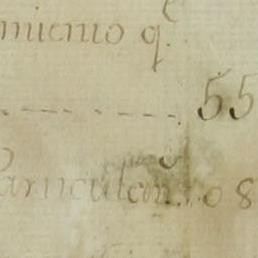 miento qe.
55
Particular... 08